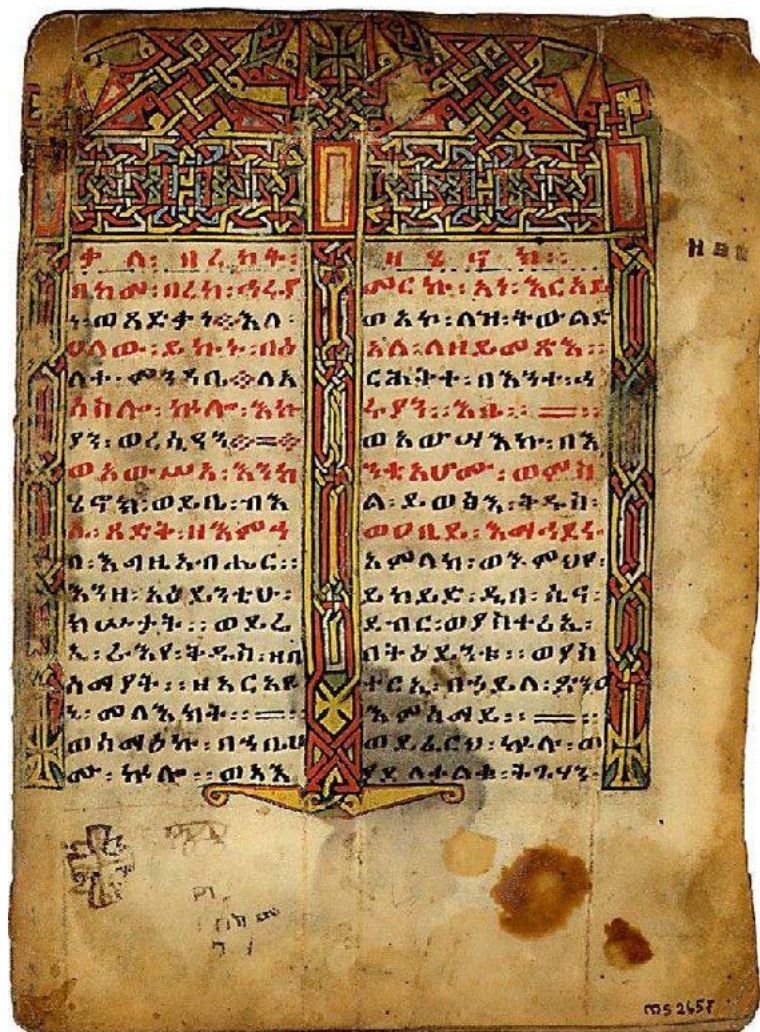 ቃለ፡ በረከት፡
ዘከመ፡ ባረከ፡ ኅሩያ
ነ፡ ወጻድቃነ፡ እለ፡
ሀለው፡ ይኩኑ፡ በዕ
ለተ፡ ምንዳቤ፡ ለአ
ሰስሎ፡ ኵሎ፡ እኩ
ያን፡ ወረሲዓን።
ወአውሥአ፡
ሄኖክ፡ ወይቤ፡ ብእ
ሲ፡ ጻድቅ፡ ዘእምኀ
በ፡ እግዚአብሔር፡
እንዘ፡ አዕይንቲሁ፡
ክሡታት፡ ወይሬ
ኢ፡ ራእየ፡ ቅዱስ፡ ዘበ
ሰማያት፡ ዘአርአዩ
ኒ፡ መላእክት፡
ወሰማዕኩ፡ በኀቤሆ
ሙ፡ ኵሎ፡ ወአእ
ዘሄኖክ፡
መርኩ፡ አነ፡
ወአኮ፡ ለዝ፡ ትውልድ
አላ፡ ለዘይመጽእ፡
በእንተ፡ ኅ
ሩያን፡ እቤ፡
ወአውሣእኩ፡ በእ
ይወፅእ፡ ቅዱስ፡
ወዐቢይ፡ እማኅደሩ፡
አምላክ፡ ወእምህየ
ይከይድ፡ ዲበ፡ ሲና፡
ደብር፡ ወያስተርኢ፡
በትዕይንቱ፡ ወያስ
ተርኢ፡ በኃይለ፡ ጽንዐ
እምሰማይ፡
ወይፈርህ፡ ኵሉ፡ ወ
ያደለቀልቁ፡ ትጉሃን፡
MS 2657